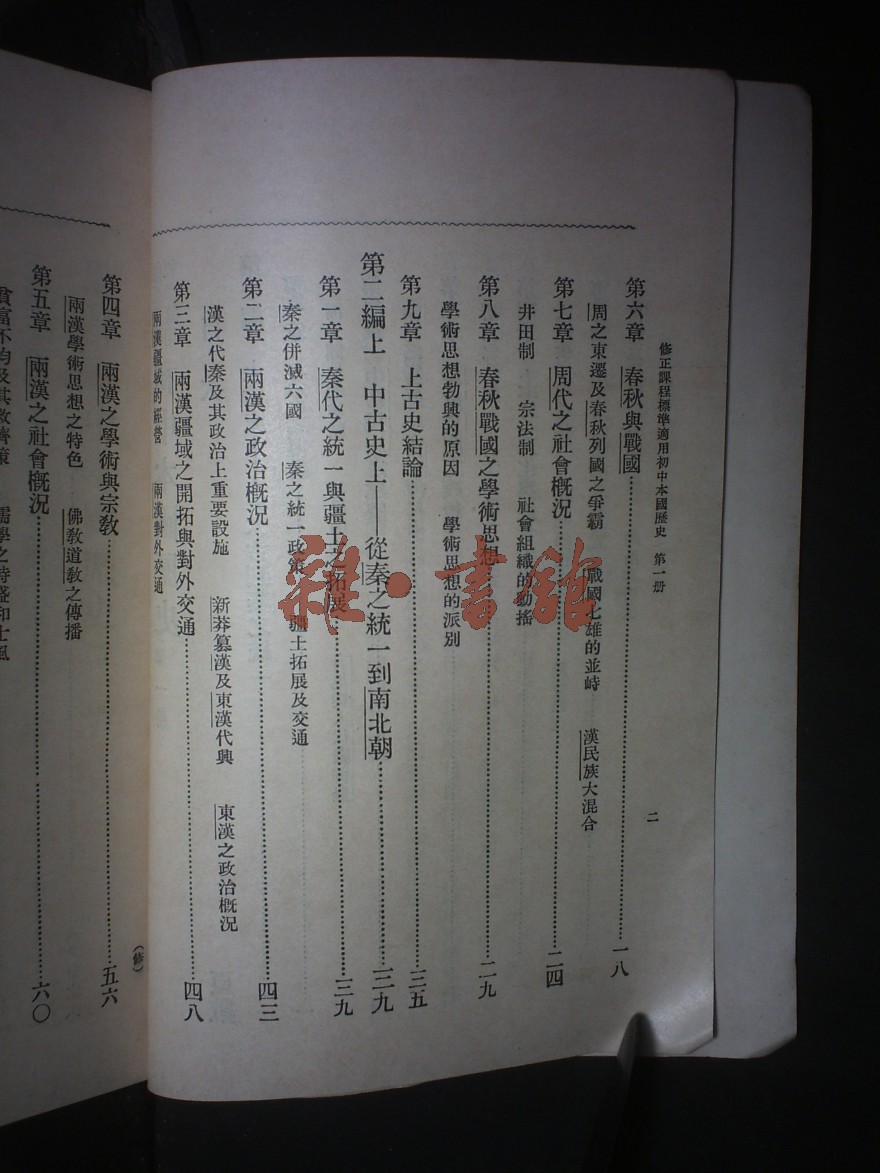 修正課程標準適用初中本國歷史 第一册
二
第六章 春秋與戰國……一八
周之東遷及春秋列國之爭霸 戰國七雄的並峙 漢民族大混合
第七章 周代之社會概況……二四
井田制 宗法制 社會組織的動搖
第八章 春秋戰國之學術思想……二九
學術思想勃興的原因 學術思想的派別
第九章 上古史結論……三五
第二編上 中古史上——從秦之統一到南北朝……三九
第一章 秦代之統一與疆土之拓展……三九
秦之併滅六國 秦之統一政策 疆土拓展及交通
第二章 兩漢之政治概況……四三
漢之代秦及其政治上重要設施 新莽篡漢及東漢代興 東漢之政治概況
第三章 兩漢疆域之開拓與對外交通……四八
兩漢疆域的經營 兩漢對外交通
(修)
第四章 兩漢之學術與宗教……五六
兩漢學術思想之特色 佛教道教之傳播
第五章 兩漢之社會概況……六〇
貧富不均及其救濟策 儒學之特盛和士風
雜·書館